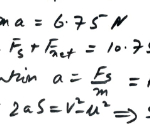 ma = 6.75 N
Fs + Fnet = 10.75
a = Fs/m =
2aS = v² - u² ⇒